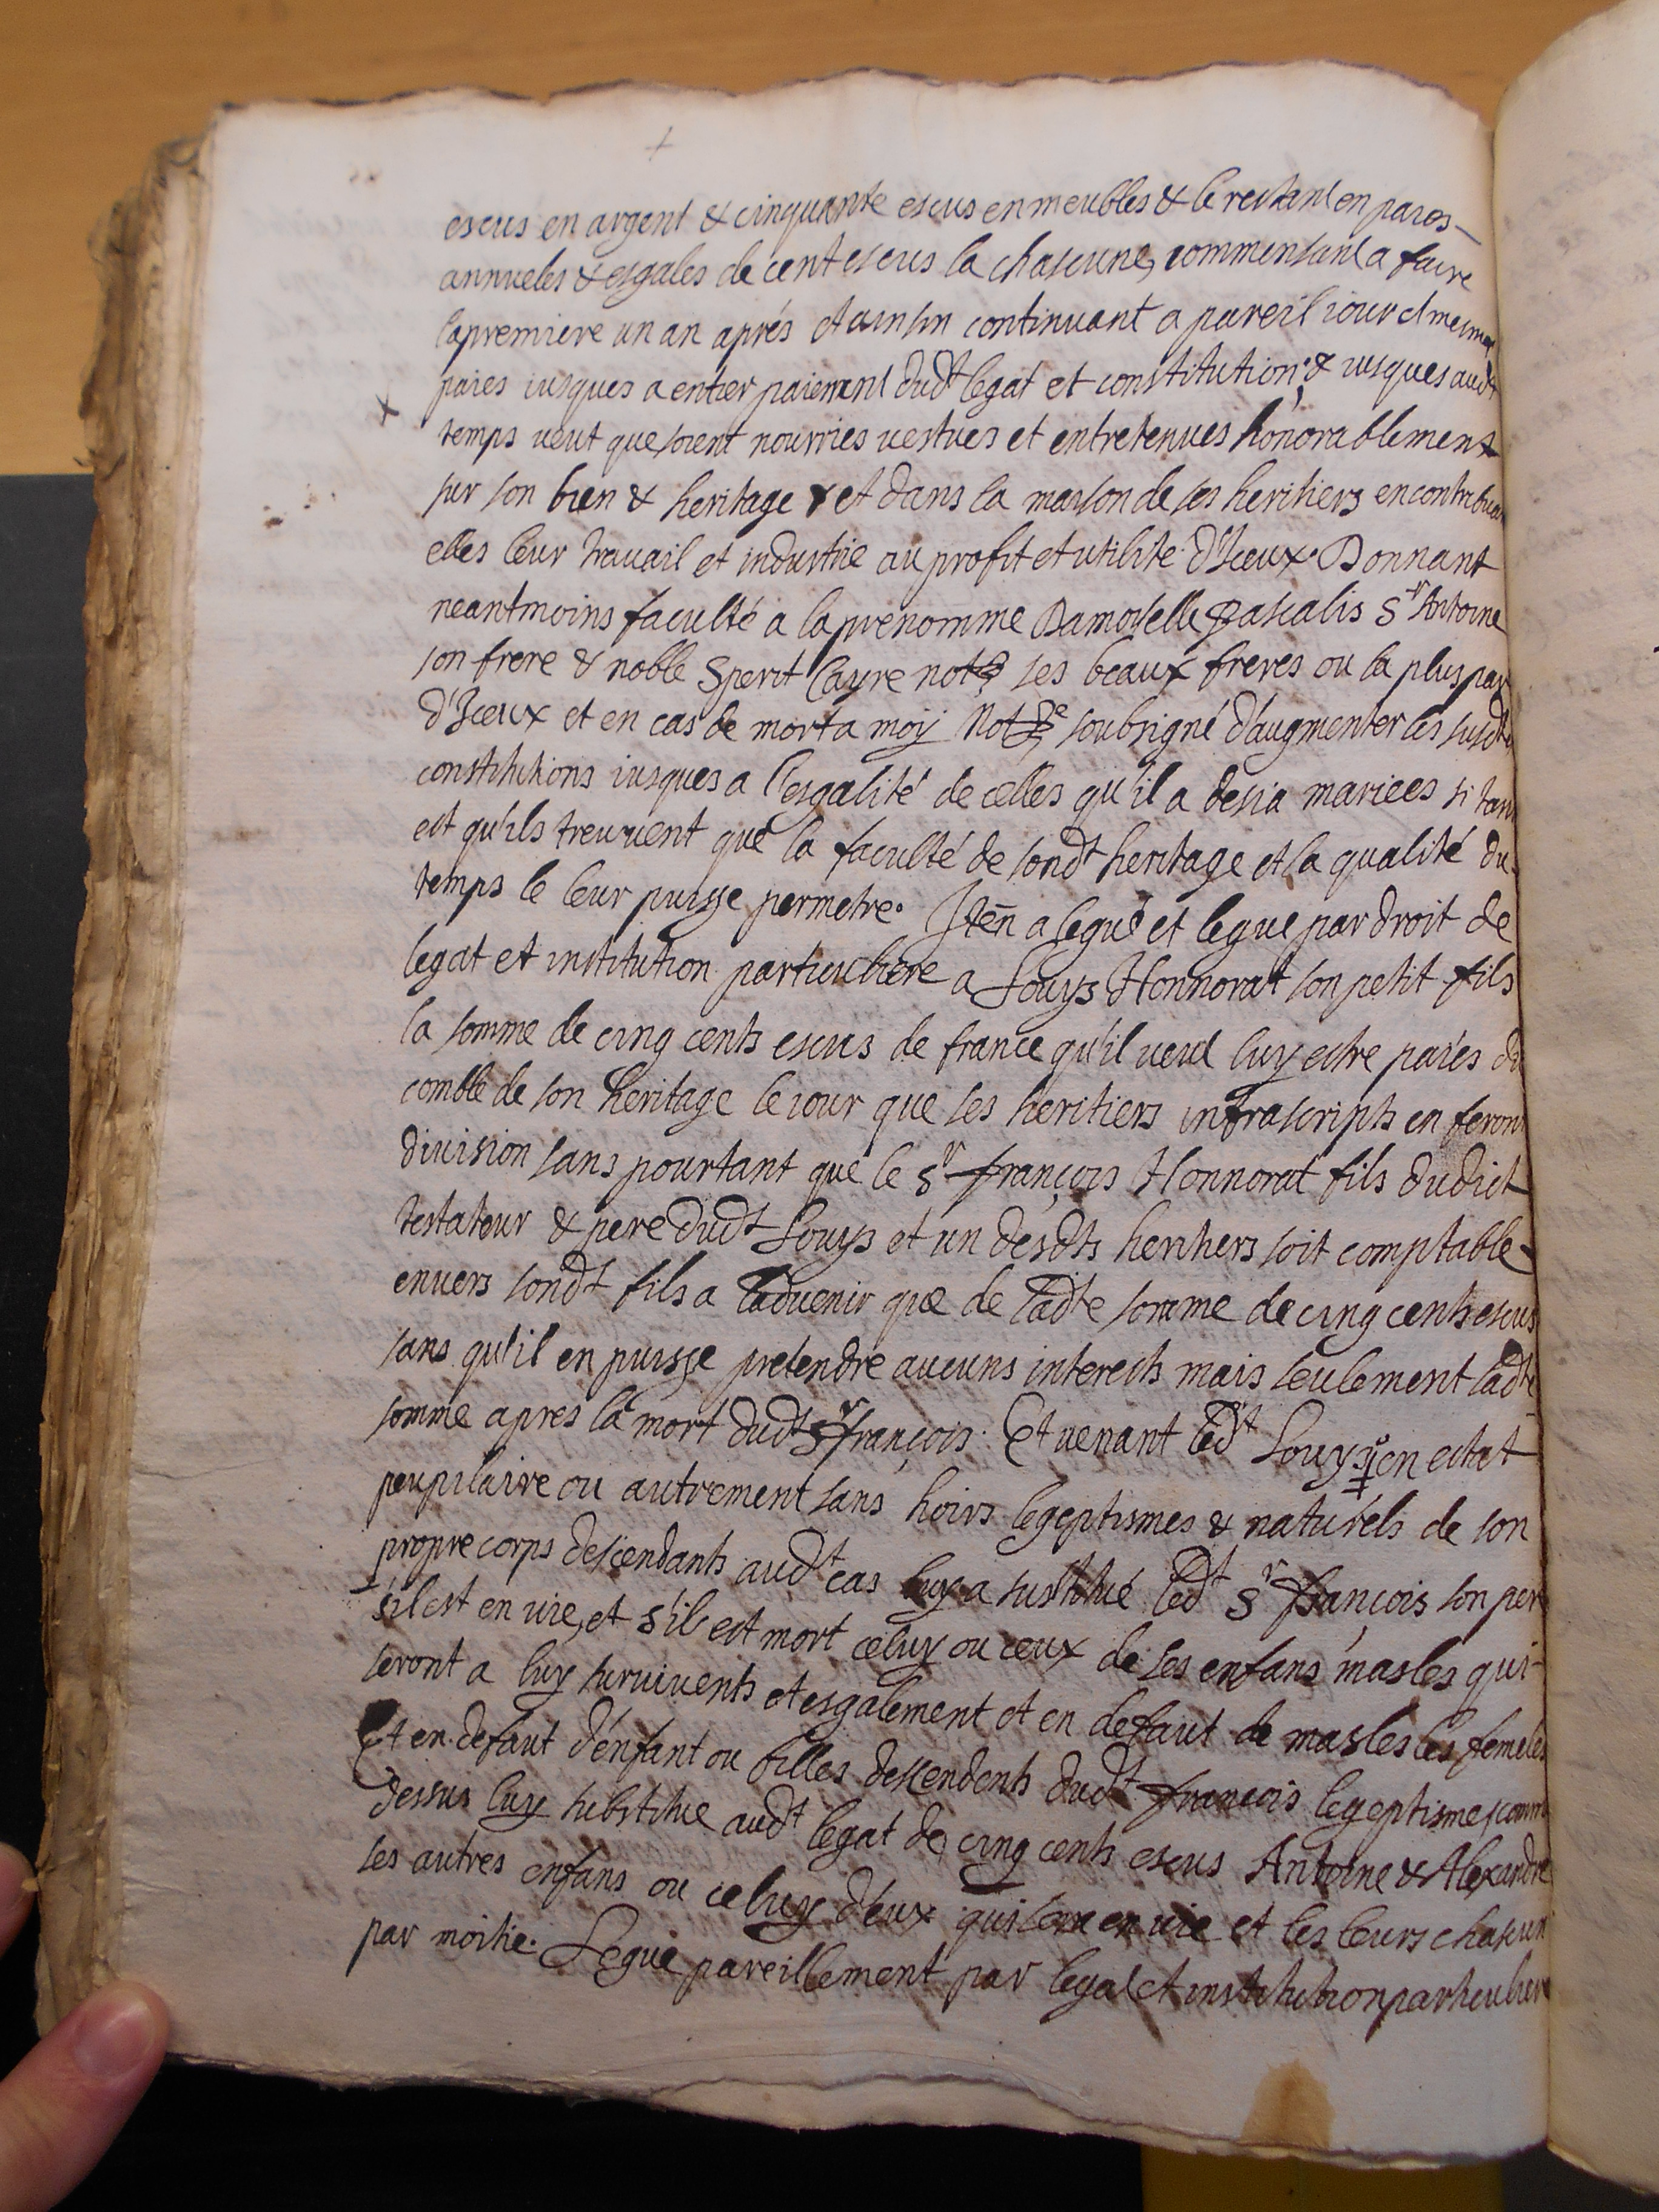 escus en argent & cinquante escus en meubles & le restant en paies
annueles & esgales de cent escus la chascune, commensant a faire
la premiere un an aprés et ainsin continuant a pareil iour et mesmes
paies iusques a entier paiement dudt legat et constitution; & iusques audt
temps veut que soient nourries vestues et entretenues honorablement
sur son bien & heritage & et dans la maison de ses heritiers en contribuant
elles leur travail et industrie au profit et utilité d'Iceux. Donnant
neantmoins faculté a la prenommé Damoyselle Pascalis Sr Antoine
son frere & noble Sperit Layre notre ses beaux freres ou la plus part
d'Iceux et en cas de mort a moy Notre soubsigné d'augmenter les susdts
constitutions iusques a l'esgalité de celles qu'il a desia mariees si tant
est qu'ils treuvent que la faculté de sondt heritage et la qualité du
temps le leur puisse permetre. Iten a legué et legue par droit de
legat et institution particuliere a Louys Honnorat son petit fils
la somme de cinq cents escus de france qu'il veut luy estre paiés du
comble de son heritage le iour que ses heritiers infrascripts en feront
division sans pourtant que le Sr françois Honnorat fils dudict
testateur & pere dudt Louys et un desdts heritiers soit comptable
envers sondt fils a l'advenir que de ladte somme de cinq cents escus
sans qu'il en puisse pretendre aucuns interests mais seulement ladte
somme apres la mort dudt Sr françois. Et venant ledt Louys en estat
peupilaire ou autrement sans hoirs legeptismes & naturels de son
propre corps descendants audt cas luy a sustitué ledt Sr françois son pere
s'il est en vie, et s'il est mort celuy ou ceux de ses enfans masles qui
seront a luy survivents et esgalement et en defaut de masles les femeles
Et en defaut d'enfant ou filles descendents dudt françois legeptismes comme
dessus luy substitue audt legat de cinq cents escus Antoine & Alexandre
ses autres enfans ou celuy d'eux qui sera en vie et les leurs chascun
par moitie. Legue pareillement par legat et institution particuliere